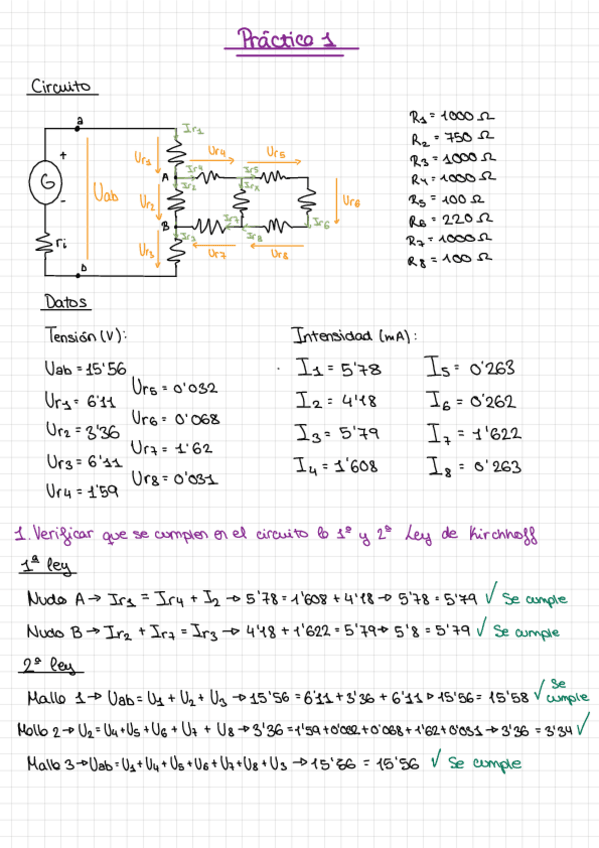 Práctica 1
Circuito
a
Ir1
Ur4
Ur5
+
Ur1
Ir4
Ir5
A
Ir2
Irx
G
Uab
Ur2
Ur6
-
B
Ir7
Ir6
Ir3
Ir8
ri
Ur3
Ur7
Ur8
b
R1 = 1000 Ω
R2 = 750 Ω
R3 = 1000 Ω
R4 = 1000 Ω
R5 = 100 Ω
R6 = 220 Ω
R7 = 1000 Ω
R8 = 100 Ω
Datos
Tensión (V):
Uab = 15'56
Ur1 = 6'11
Ur2 = 3'36
Ur3 = 6'11
Ur4 = 1'59
Ur5 = 0'032
Ur6 = 0'068
Ur7 = 1'62
Ur8 = 0'031
Intensidad (mA):
I1 = 5'78
I2 = 4'18
I3 = 5'79
I4 = 1'608
I5 = 0'263
I6 = 0'262
I7 = 1'622
I8 = 0'263
1. Verificar que se cumplen en el circuito la 1ª y 2ª Ley de Kirchhoff
1ª ley
Nudo A → Ir1 = Ir4 + I2 → 5'78 = 1'608 + 4'18 → 5'78 = 5'79 ✓ Se cumple
Nudo B → Ir2 + Ir7 = Ir3 → 4'18 + 1'622 = 5'79 → 5'8 = 5'79 ✓ Se cumple
2ª ley
Malla 1 → Uab = U1 + U2 + U3 → 15'56 = 6'11 + 3'36 + 6'11 → 15'56 = 15'58 ✓ Se cumple
Malla 2 → U2 = U4 + U5 + U6 + U7 + U8 → 3'36 = 1'59 + 0'032 + 0'068 + 1'62 + 0'031 → 3'36 = 3'34 ✓
Malla 3 → Uab = U1 + U4 + U5 + U6 + U7 + U8 + U3 → 15'56 = 15'56 ✓ Se cumple